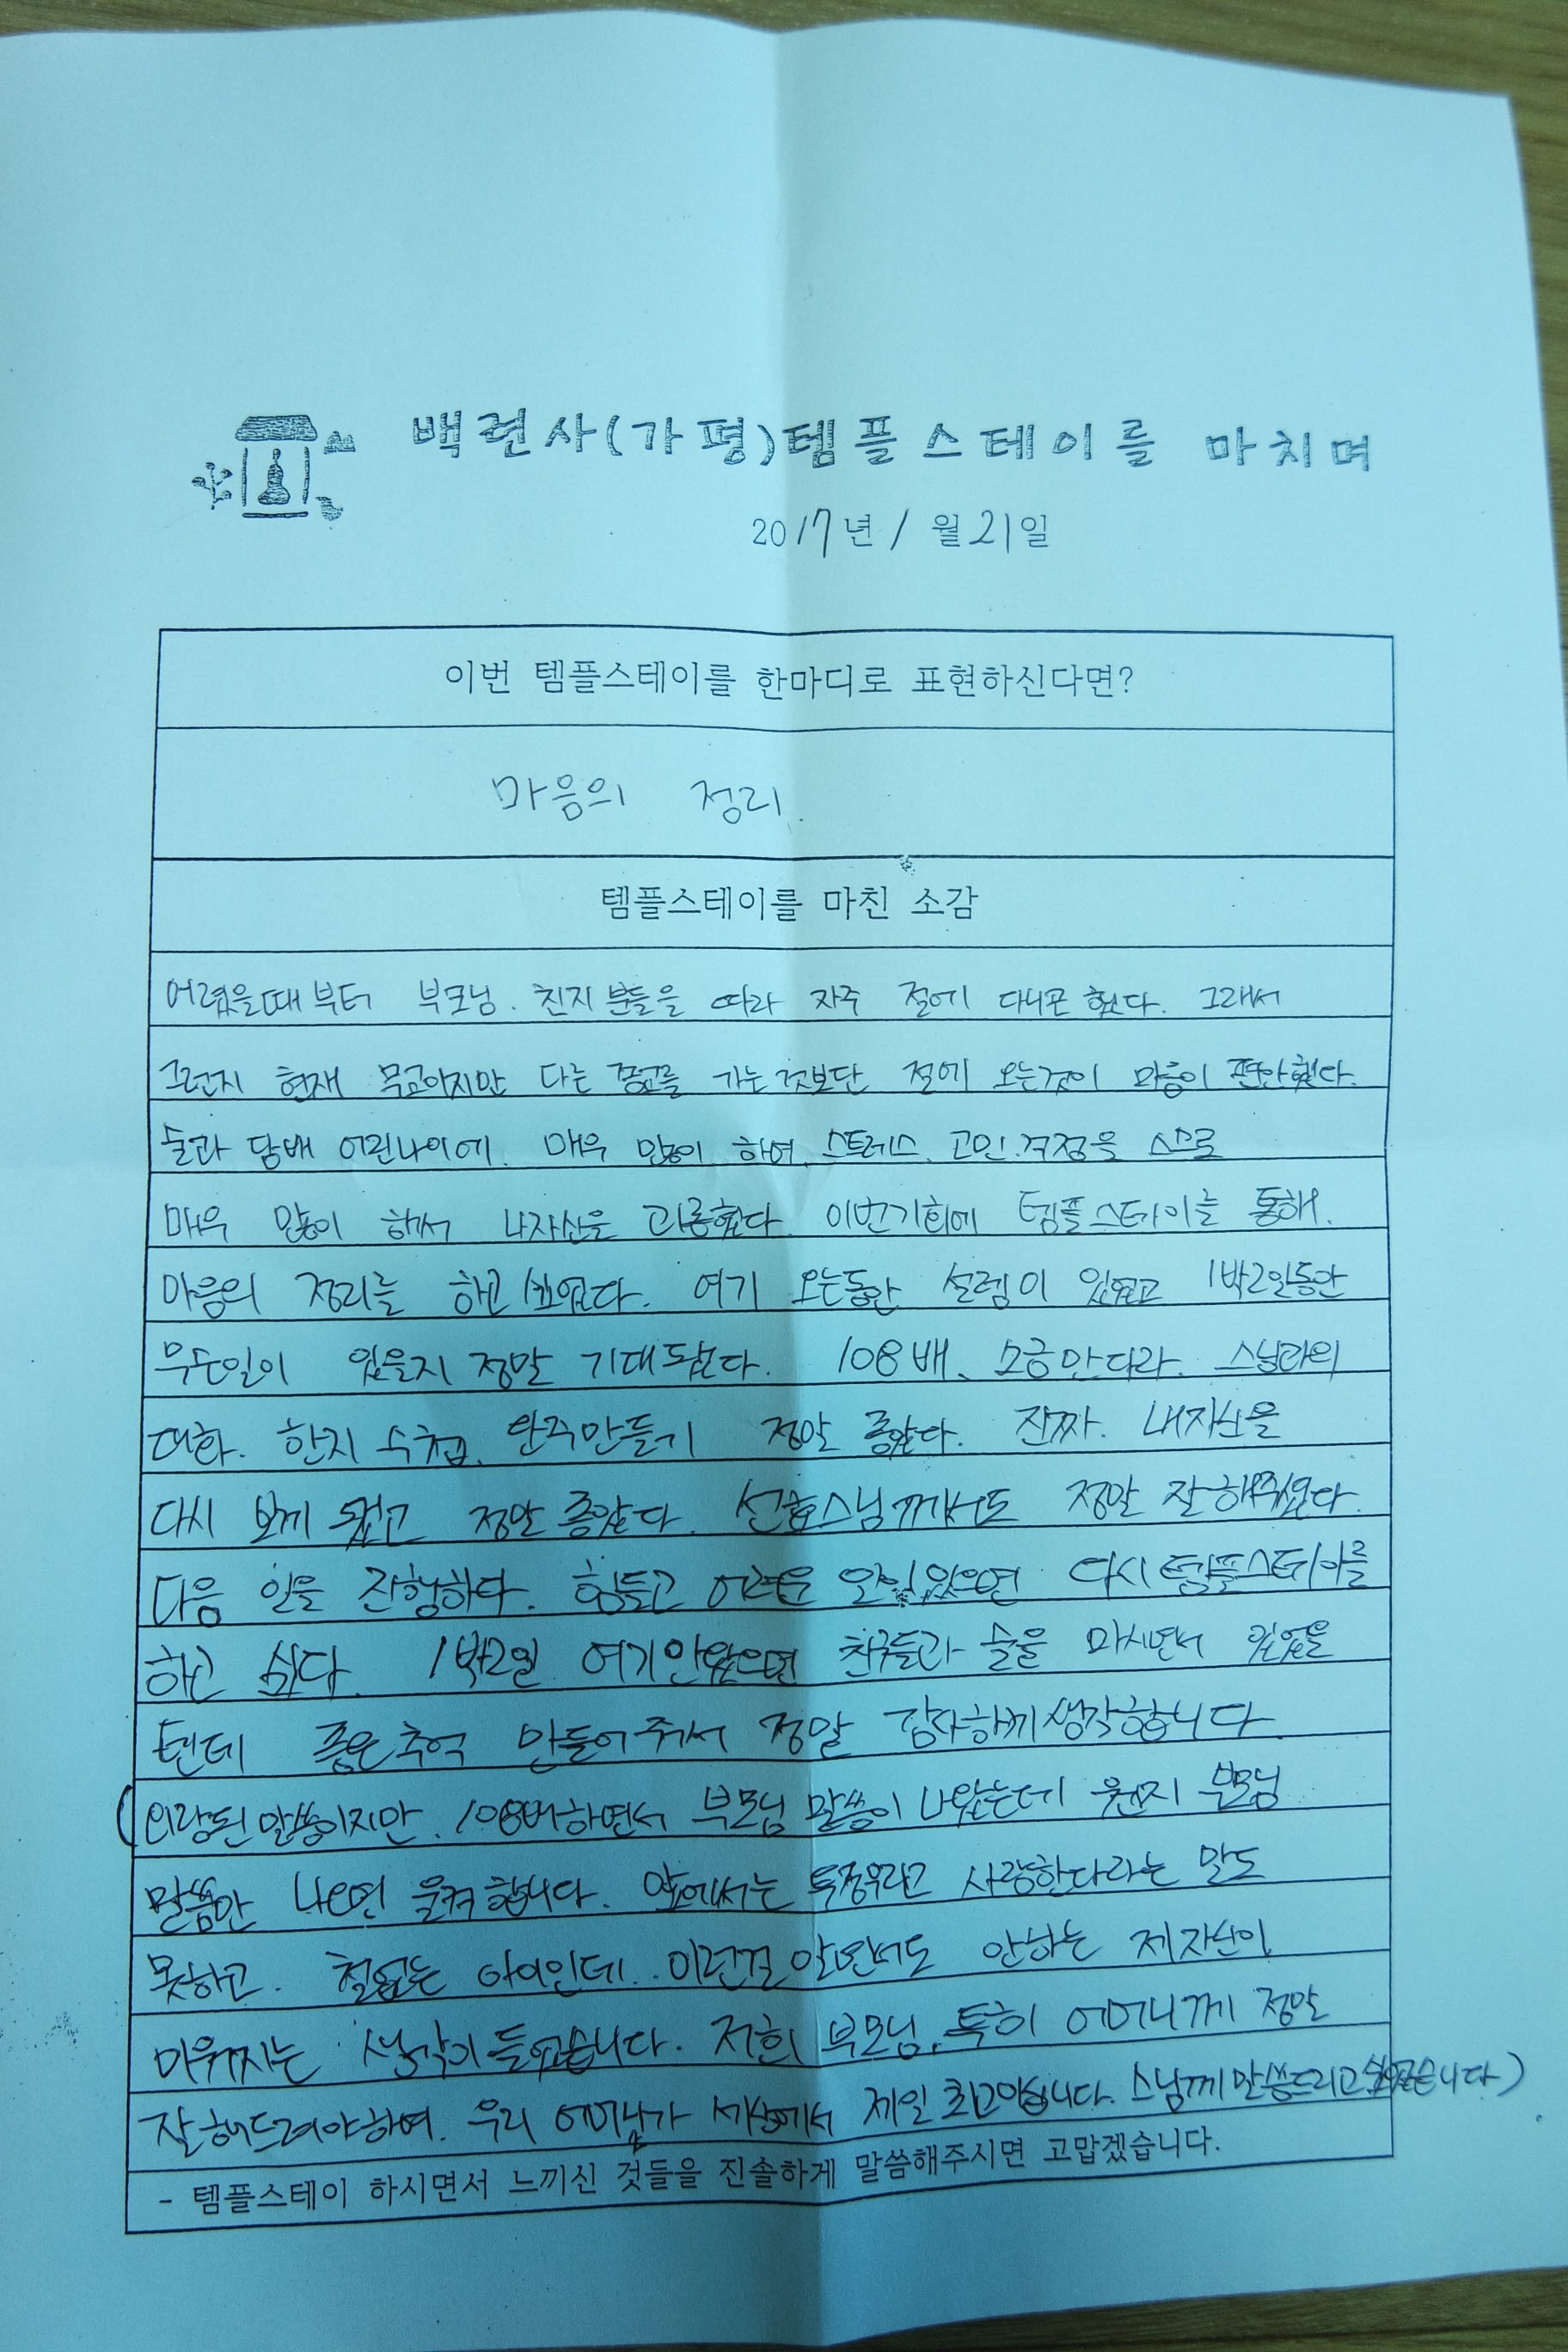 백련사(가평)템플스테이를 마치며
2017년 1월 21일
이번 템플스테이를 한마디로 표현하신다면?
마음의 정리.
템플스테이를 마친 소감
어렸을때부터 부모님. 친지분들을 따라 자주 절에 다니곤 했다. 그래서
그런지 현재 무교이지만 다른 종교를 가는것보단 절에 오는것이 마음이 편안했다.
술과 담배 어린나이에. 매우 많이 하며, 스트레스, 고민.걱정을 스스로
매우 많이 해서 나자신을 괴롭혔다. 이번기회에 템플스테이를 통해.
마음의 정리를 하고 싶었다. 여기 오는동안 설렘이 있었고 1박2일동안
무슨일이 있을지 정말 기대됐다. 108배, 소금만다라. 스님과의
대화. 한지 수첩, 단주만들기 정말 좋았다. 진짜. 내자신을
다시 보게 됐고 정말 좋았다. 선효스님께서도 정말 잘해주셨다.
다음 일을 진행하다. 힘들고 어려운 일이있으면 다시템플스테이를
하고 싶다. 1박2일 여기안왔으면 친구들과 술을 마시면서 있었을
텐데 좋은추억 만들어주셔서 정말 감사하게생각합니다.
(외람된말씀이지만. 108배하면서 부모님 말씀이 나왔는데 왠지 부모님
말씀만 나오면 울컥합니다. 앞에서는 투정부리고 사랑한다라는 말도
못하고. 철없는 아이인데.. 이런걸 알면서도 안하는 제자신이
미워지는 생각이 들었습니다. 저희 부모님, 특히 어머니께 정말
잘해드려야하며. 우리 어머님가 세상에서 제일 최고이십니다. 스님께말씀드리고싶었습니다)
- 템플스테이 하시면서 느끼신 것들을 진솔하게 말씀해주시면 고맙겠습니다.